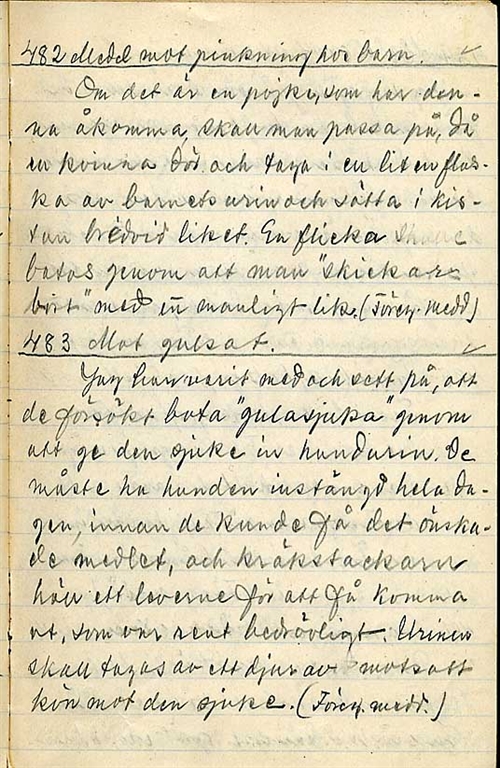 482 Medel mot pinkning hos barn.
Om det är en pojke, som har den-
na åkomma, skall man passa på, då
en kvinna dör och taga i en liten flas-
ka av barnets urin och sätta i kis-
tan bredvid liket. En flicka skulle
botas genom att man "skickar
bort" med en manligt lik. (Föreg. medd)
483 Mot gulsot.
Jag har varit med och sett på, att
de försökt bota "gulasjuka" genom
att ge den sjuke in hundurin. De
måste ha hunden instängd hela da-
gen, innan de kunde få det önska-
de medlet, och kräkstackarn
höll ett leverne för att få komma
ut, som var rent bedrövligt. Urinen
skall tagas av ett djur av motsatt
kön mot den sjuke. (Föreg. medd.)